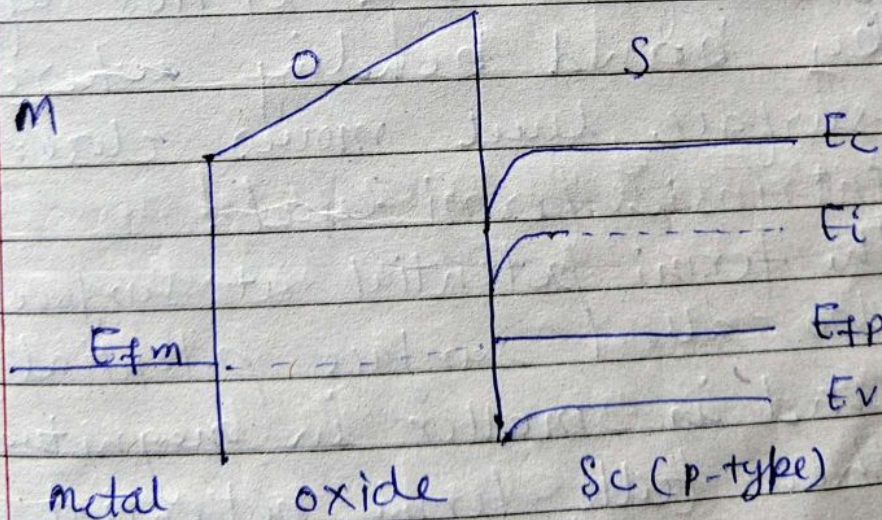 O
S
M
Ec
Ei
Efm
Efp
Ev
metal oxide Sc (p-type)